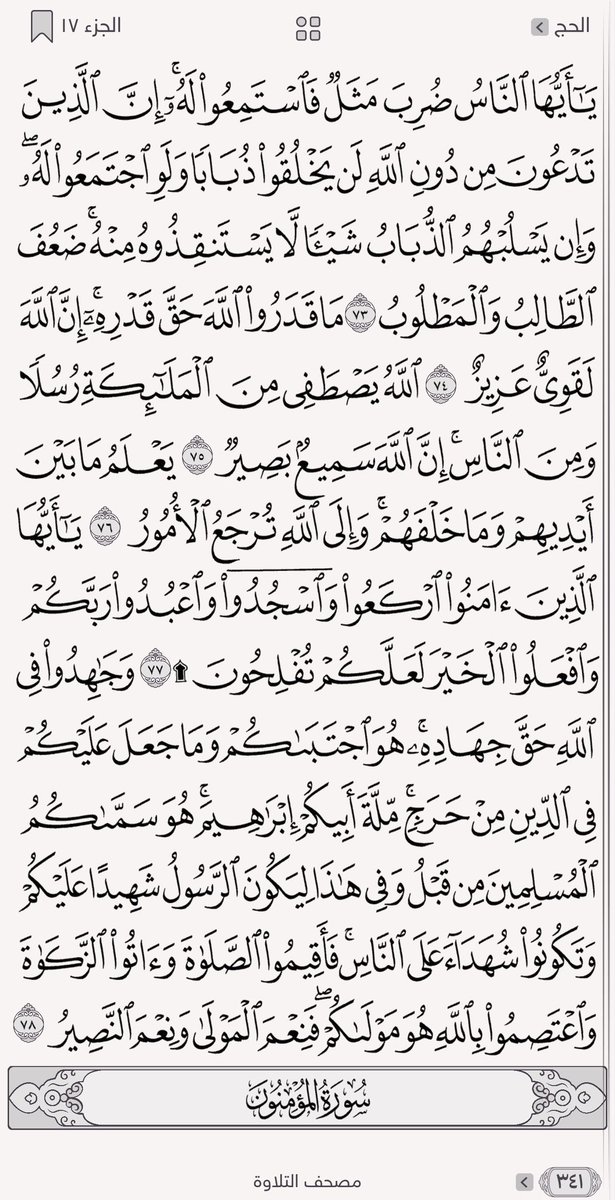 الحج
الجزء ١٧
يَـٰٓأَيُّهَا ٱلنَّاسُ ضُرِبَ مَثَلٌ فَٱسْتَمِعُوا۟ لَهُۥٓ ۚ إِنَّ ٱلَّذِينَ
تَدْعُونَ مِن دُونِ ٱللَّهِ لَن يَخْلُقُوا۟ ذُبَابًا وَلَوِ ٱجْتَمَعُوا۟ لَهُۥ ۖ
وَإِن يَسْلُبْهُمُ ٱلذُّبَابُ شَيْـًٔا لَّا يَسْتَنقِذُوهُ مِنْهُ ۚ ضَعُفَ
ٱلطَّالِبُ وَٱلْمَطْلُوبُ ٧٣ مَا قَدَرُوا۟ ٱللَّهَ حَقَّ قَدْرِهِۦٓ ۚ إِنَّ ٱللَّهَ
لَقَوِىٌّ عَزِيزٌ ٧٤ ٱللَّهُ يَصْطَفِى مِنَ ٱلْمَلَـٰٓئِكَةِ رُسُلًا
وَمِنَ ٱلنَّاسِ ۚ إِنَّ ٱللَّهَ سَمِيعٌۢ بَصِيرٌ ٧٥ يَعْلَمُ مَا بَيْنَ
أَيْدِيهِمْ وَمَا خَلْفَهُمْ ۚ وَإِلَى ٱللَّهِ تُرْجَعُ ٱلْأُمُورُ ٧٦ يَـٰٓأَيُّهَا
ٱلَّذِينَ ءَامَنُوا۟ ٱرْكَعُوا۟ وَٱسْجُدُوا۟ وَٱعْبُدُوا۟ رَبَّكُمْ
وَٱفْعَلُوا۟ ٱلْخَيْرَ لَعَلَّكُمْ تُفْلِحُونَ ۩ ٧٧ وَجَـٰهِدُوا۟ فِى
ٱللَّهِ حَقَّ جِهَادِهِۦ ۚ هُوَ ٱجْتَبَىٰكُمْ وَمَا جَعَلَ عَلَيْكُمْ
فِى ٱلدِّينِ مِنْ حَرَجٍ ۚ مِّلَّةَ أَبِيكُمْ إِبْرَٰهِيمَ ۚ هُوَ سَمَّىٰكُمُ
ٱلْمُسْلِمِينَ مِن قَبْلُ وَفِى هَـٰذَا لِيَكُونَ ٱلرَّسُولُ شَهِيدًا عَلَيْكُمْ
وَتَكُونُوا۟ شُهَدَآءَ عَلَى ٱلنَّاسِ ۚ فَأَقِيمُوا۟ ٱلصَّلَوٰةَ وَءَاتُوا۟ ٱلزَّكَوٰةَ
وَٱعْتَصِمُوا۟ بِٱللَّهِ هُوَ مَوْلَىٰكُمْ ۖ فَنِعْمَ ٱلْمَوْلَىٰ وَنِعْمَ ٱلنَّصِيرُ ٧٨
سُورَةُ المُؤْمِنُونَ
مصحف التلاوة
٣٤١